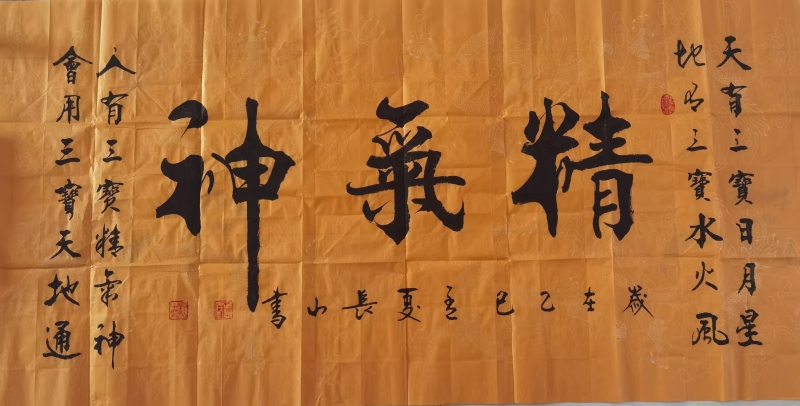 天有三寶日月星
地有三寶水火風
精氣神
歲在乙巳孟夏長山書
人有三寶精氣神
會用三寶天地通